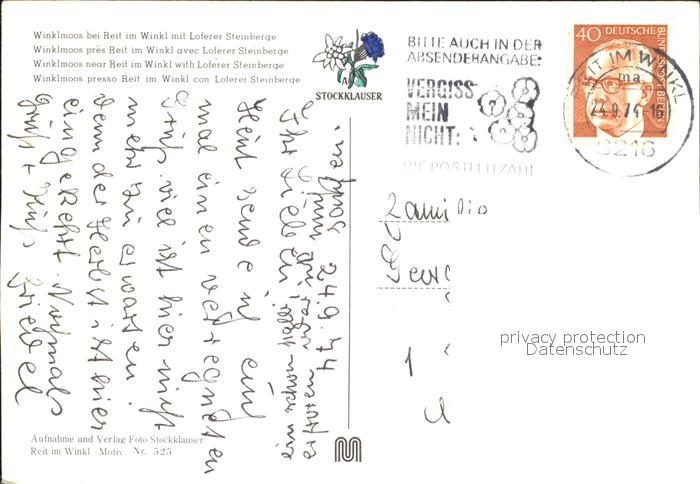 Winklmoos bei Reit im Winkl mit Loferer Steinberge
Winklmoos près Reit im Winkl avec Loferer Steinberge
Winklmoos near Reit im Winkl with Loferer Steinberge
Winklmoos presso Reit im Winkl con Loferer Steinberge
STOCKKLAUSER
BITTE AUCH IN DER
ABSENDERANGABE:
VERGISS
MEIN
NICHT:
DIE POSTLEITZAHL
40 DEUTSCHE BUNDESPOST BERLIN
REIT IM WINKL
ma
24.9.74-16
8216
24.9.74
Ihr Lieben,
Heut sende ich euch
mal einen verregneten
Gruß. viel ist hier nicht
mehr zu erwarten.
denn der Herbst ist hier
eingekehrt. Nochmals
Gruß + Kuß
Familie
Georg
1
privacy protection
Datenschutz
Aufnahme und Verlag Foto Stockklauser
Reit im Winkl - Motiv. Nr. 525